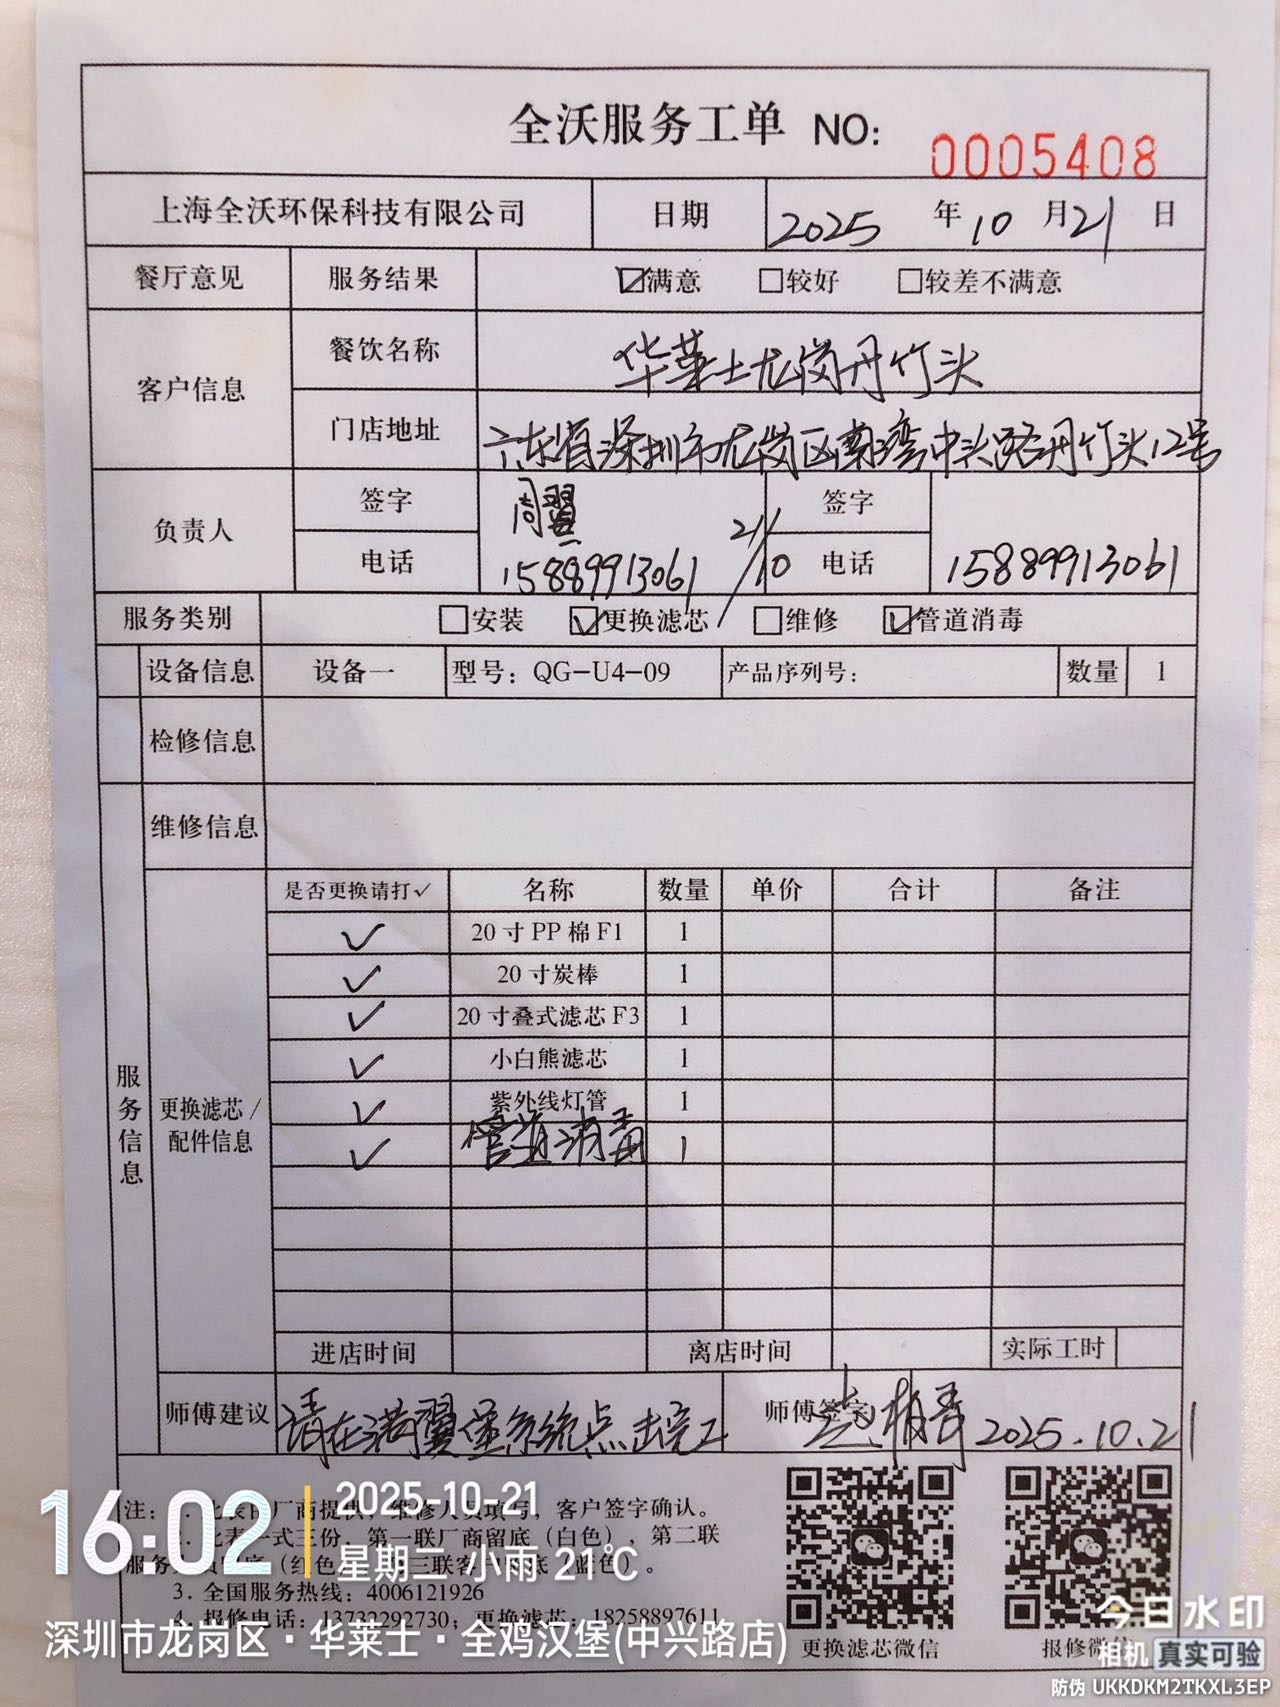 全沃服务工单 NO: 0005408
上海全沃环保科技有限公司 日期 2025 年 10 月 21 日
餐厅意见 服务结果 ☑满意 □较好 □较差不满意
客户信息 餐饮名称 华莱士龙岗丹竹头
门店地址 广东省深圳市龙岗区南湾中头路丹竹头12号
负责人 签字 周翼 21/10 签字
电话 15889913061 电话 15889913061
服务类别 □安装 ☑更换滤芯 □维修 ☑管道消毒
设备信息 设备一 型号：QG-U4-09 产品序列号： 数量 1
检修信息
维修信息
服务信息
更换滤芯/配件信息
是否更换请打✓ 名称 数量 单价 合计 备注
✓ 20寸PP棉F1 1
✓ 20寸炭棒 1
✓ 20寸叠式滤芯F3 1
✓ 小白熊滤芯 1
✓ 紫外线灯管 1
✓ 管道消毒 1
进店时间 离店时间 实际工时
师傅建议 请在满翼堡系统点击完工 师傅签字 2025.10.21
注：1. 此表由厂商提供，维修人员填写，客户签字确认。
2. 此表一式三份，第一联厂商留底（白色），第二联
服务 底（红色 三联客户 底（蓝色）。
3. 全国服务热线：4006121926
4. 报修电话：13732292730；更换滤芯：18258897611
更换滤芯微信 报修微信
16:02 2025-10-21
星期二 小雨 21℃
深圳市龙岗区·华莱士·全鸡汉堡(中兴路店)
今日水印
相机 真实可验
防伪 UKKDKM2TKXL3EP